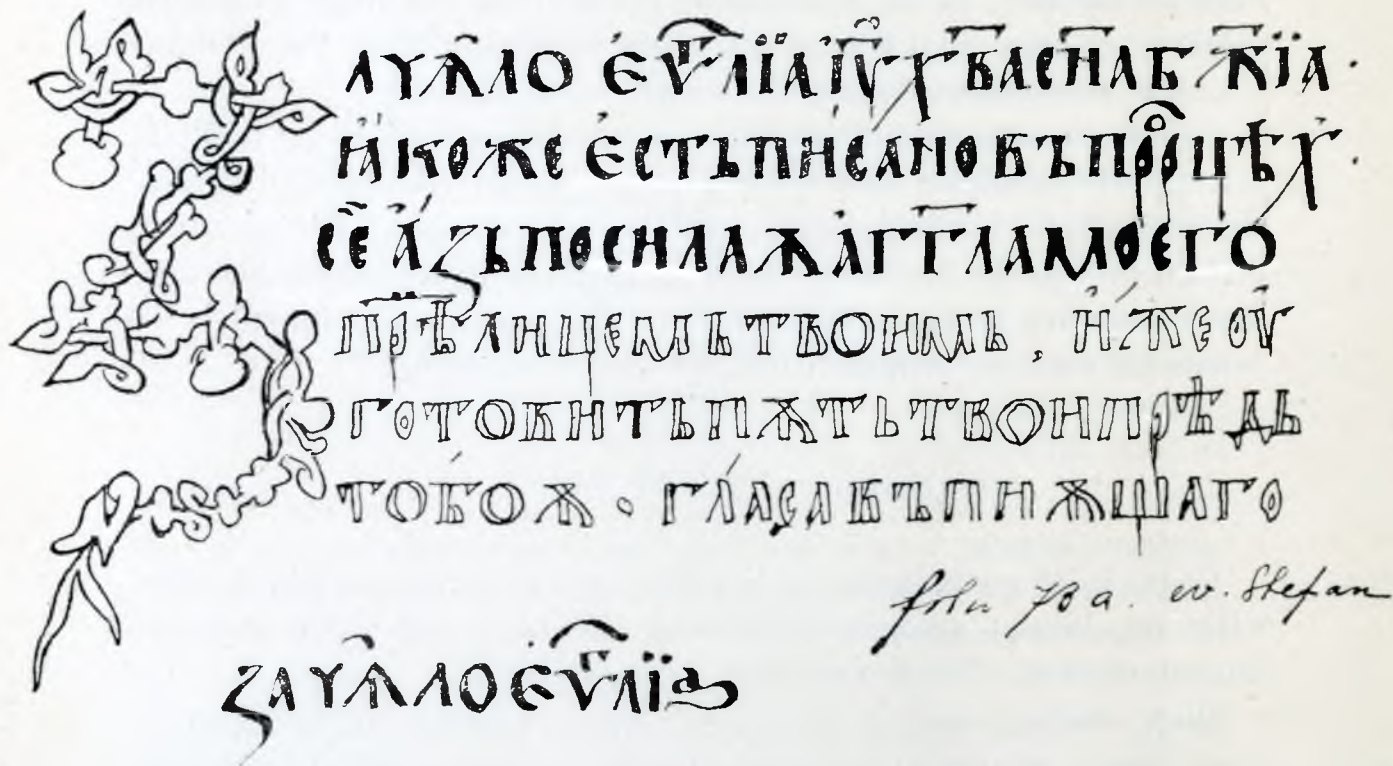 ЗАЧѦЛО ЕѴⷢ҇ЛЇА ІѴ҃ Х҃ВА СН҃А Б҃ЖЇА ·
ꙖКОЖЕ ЕСТЬ ПИСАНО ВЪ ПРРⷪ҇ЦѢХ ·
СЕ АЗЬ ПОСИЛАѪ АГГ҃ЛА МОЕГО
ПРѢ҃ ЛИЦЕМЬ ТВОИМЬ , ИЖЕ ОУ
ГОТОВИТЬ ПѪТЬ ТВОИ ПРѢДЬ
ТОБОѪ · ГЛАСА ВЪПИѪЩАГО
a. ev. Stefan
ЗАЧѦЛО ЕѴⷢ҇ЛЇА